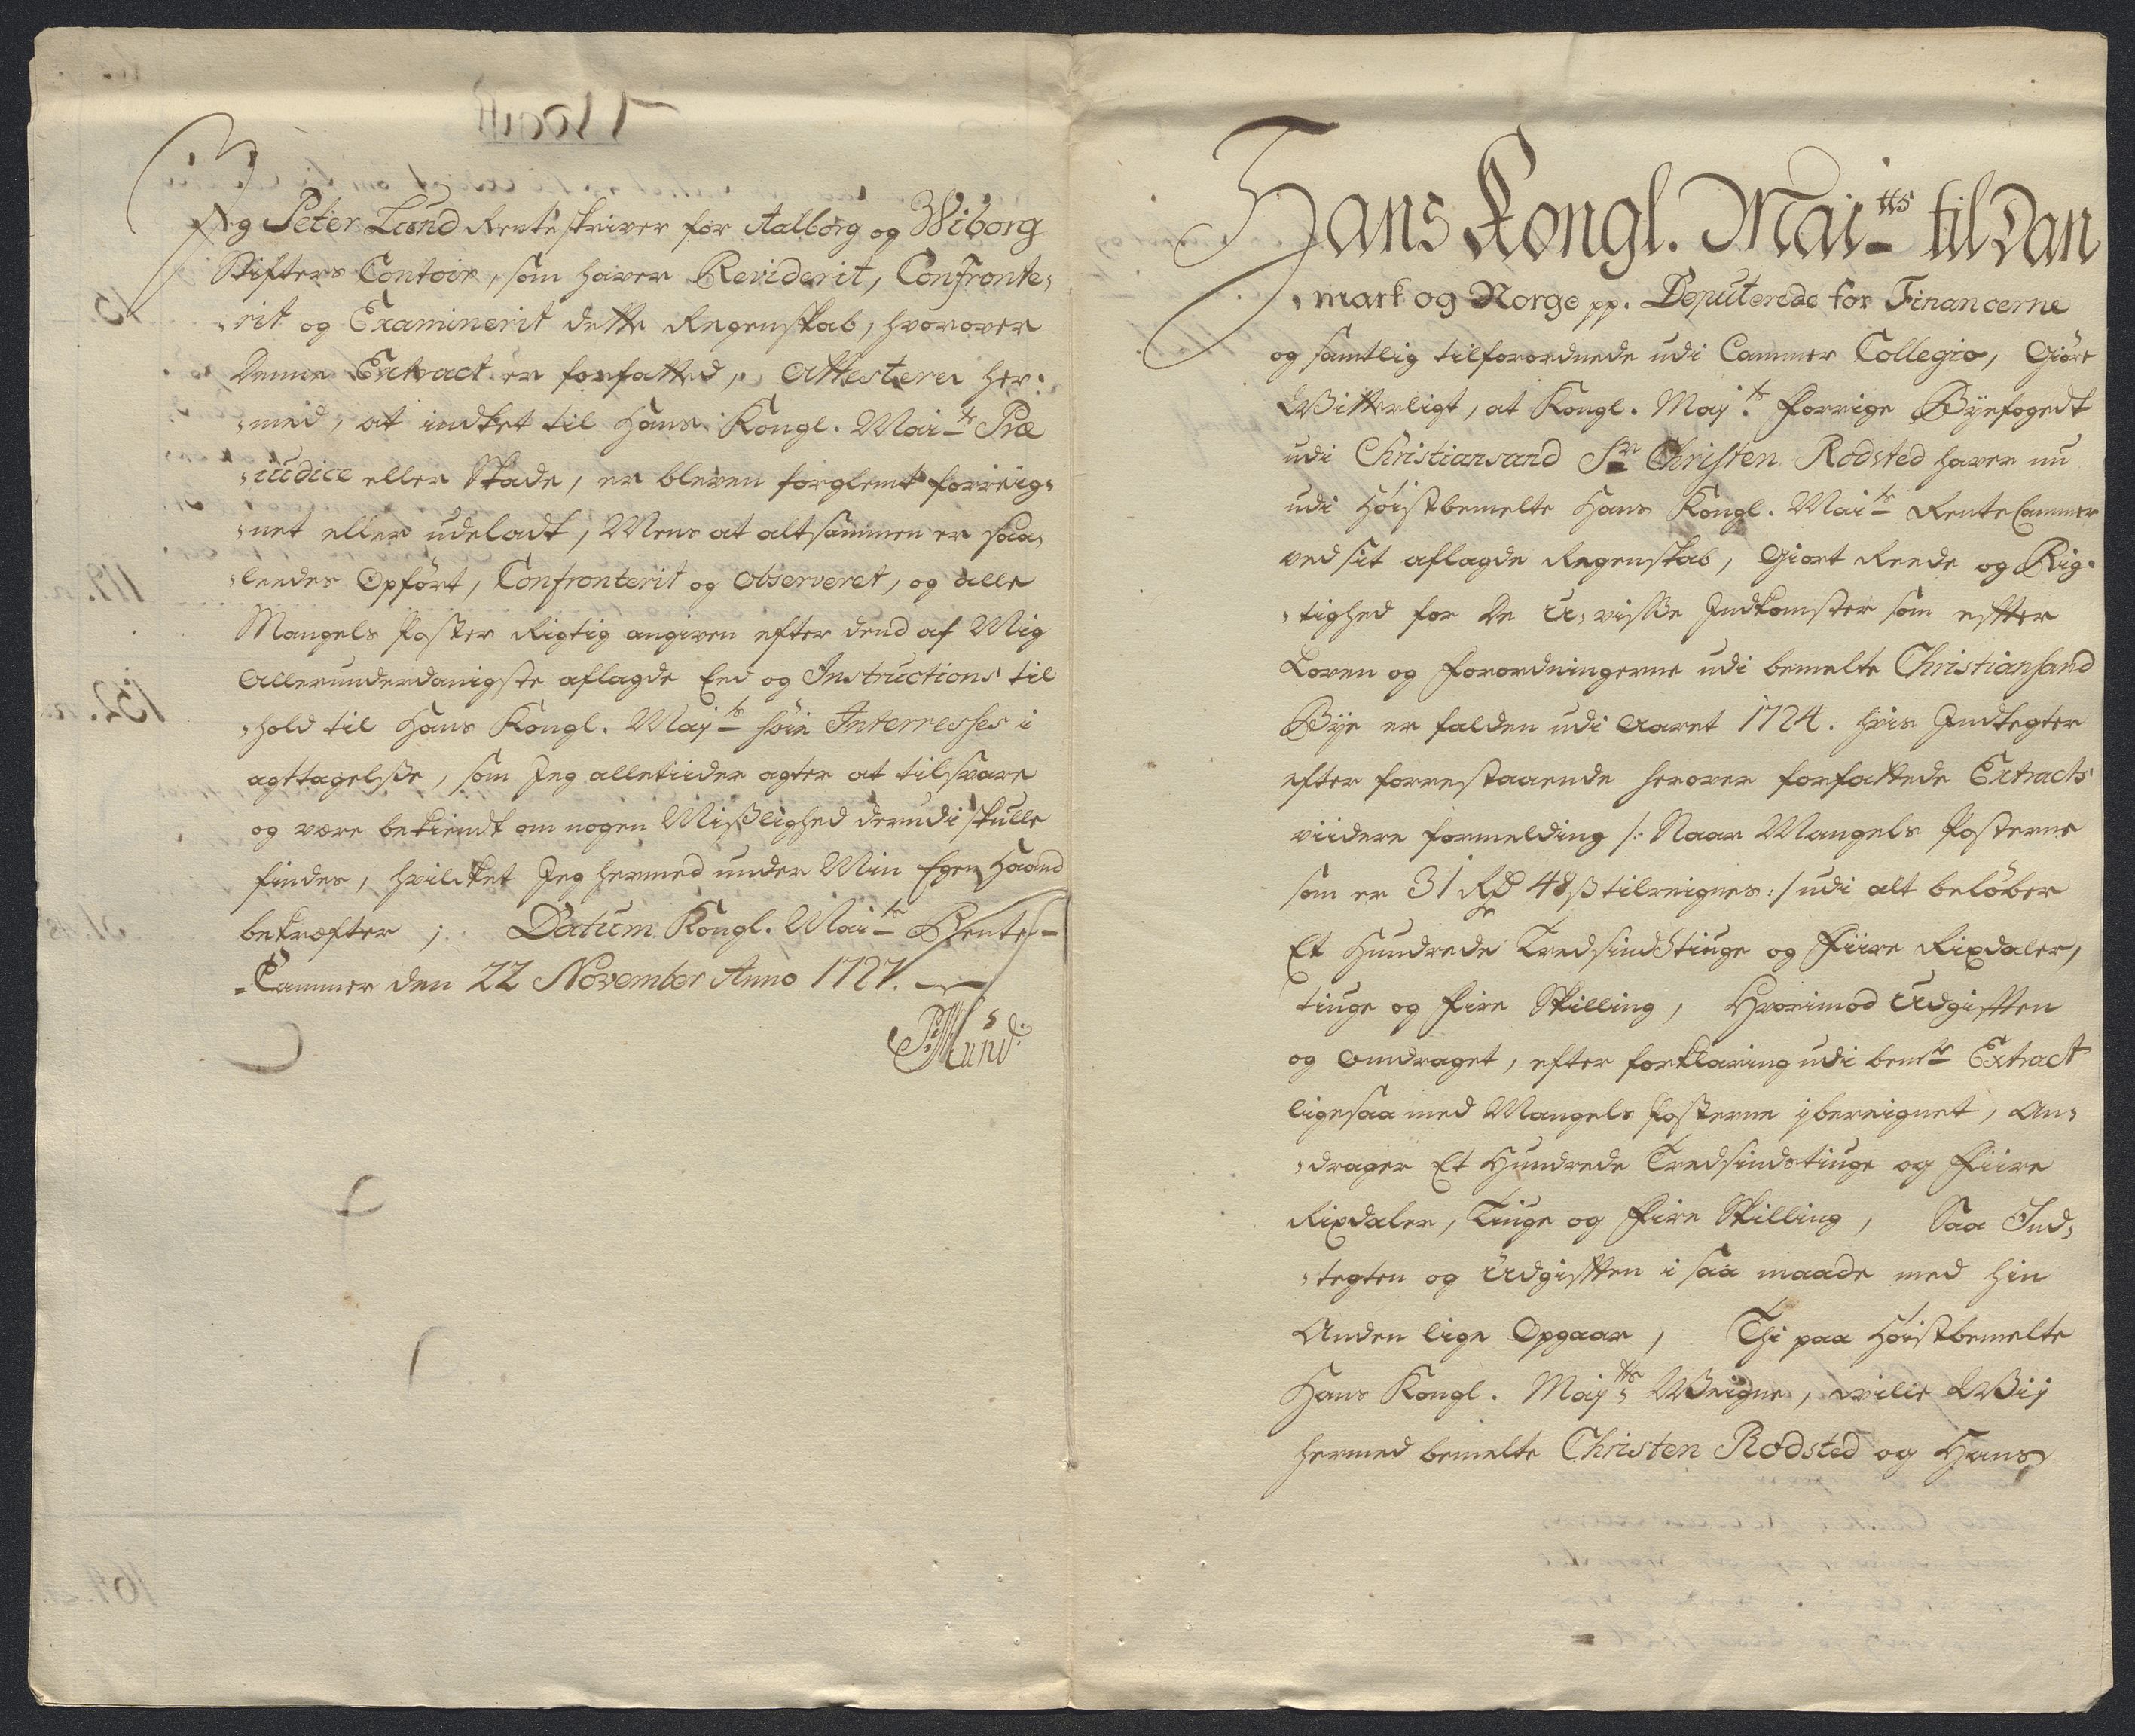 Jeg Peter Lund Renteskriver for Aalborg og Wiborg
Stifters Contoir, som haver Reviderit, Confronte,
,rit og Examinerit dette Regenskab, hvorover
Denne Extract er forfatted, Attesterer her,
,med, at indtet til Hans Kongl. Mai.ts Præ
,iudice eller Skade, er bleven forglemt forreig,
,net eller udeladt, Mens at altsammen er saa,
,ledes Opført, Confronterit og Observeret, og alle
Mangels Poster Rigtig angiven efter dend af Mig
Allerunderdanigste aflagde Eed og Instructions til
,hold til Hans Kongl. May.ts høie Interresses i
agttagelsse, som Jeg alletiider agter at tilsvare
og være bekiendt om nogen Misslighed derudi skulle
findes, hvilcket Jeg hermed under Min Egen Haand
bekræfter; Datum Kongl. Mai.ts Rente-
-Cammer den 22 November Anno 1727.
P. Lund.
Hans Kongl. Mai.tts til Dan
,mark og Norge pp. Deputerede for Financerne
og samtlig tilforordnede udi Cammer Collegio, Giøre
Witterligt, at Kongl. May.ts forrige Byefogedt
udi Christiansand Sr Christen Rodsted haver nu
udi Høistbemelte Hans Kongl. Mai.ts RenteCammer
ved sit aflagde Regenskab, Giort Reede og Rig,
,tighed for De U,visse Indkomster som effter
Loven og Forordningerne udi bemelte Christiansand
Bye er falden udi Aaret 1724. hvis Indtegter
efter forrestaaende herover forfattede Extracts
viidere formelding /: Naar Mangels Posterne
som er 31 Rd 48 ß tilreignes :/ udi alt beløber
Et Hundrede Tredsindstiuge og Fiire Rixdaler,
tiuge og Fire Skilling, Hvorimod Udgifften
og Omdraget, efter forklaring udi bemte Extract
ligesaa med Mangels Posterne ibereignet, An,
,drager Et Hundrede Tredsindstiuge og Fiire
Rixdaler, Tiuge og Fire Skilling, Saa Ind,
,tegten og Udgifften i saa maade med hin
Anden lige Opgaar, Thi paa Høistbemelte
Hans Kongl. May.tts Weigne, wilie Wij
hermed bemelte Christen Rodsted og Hans